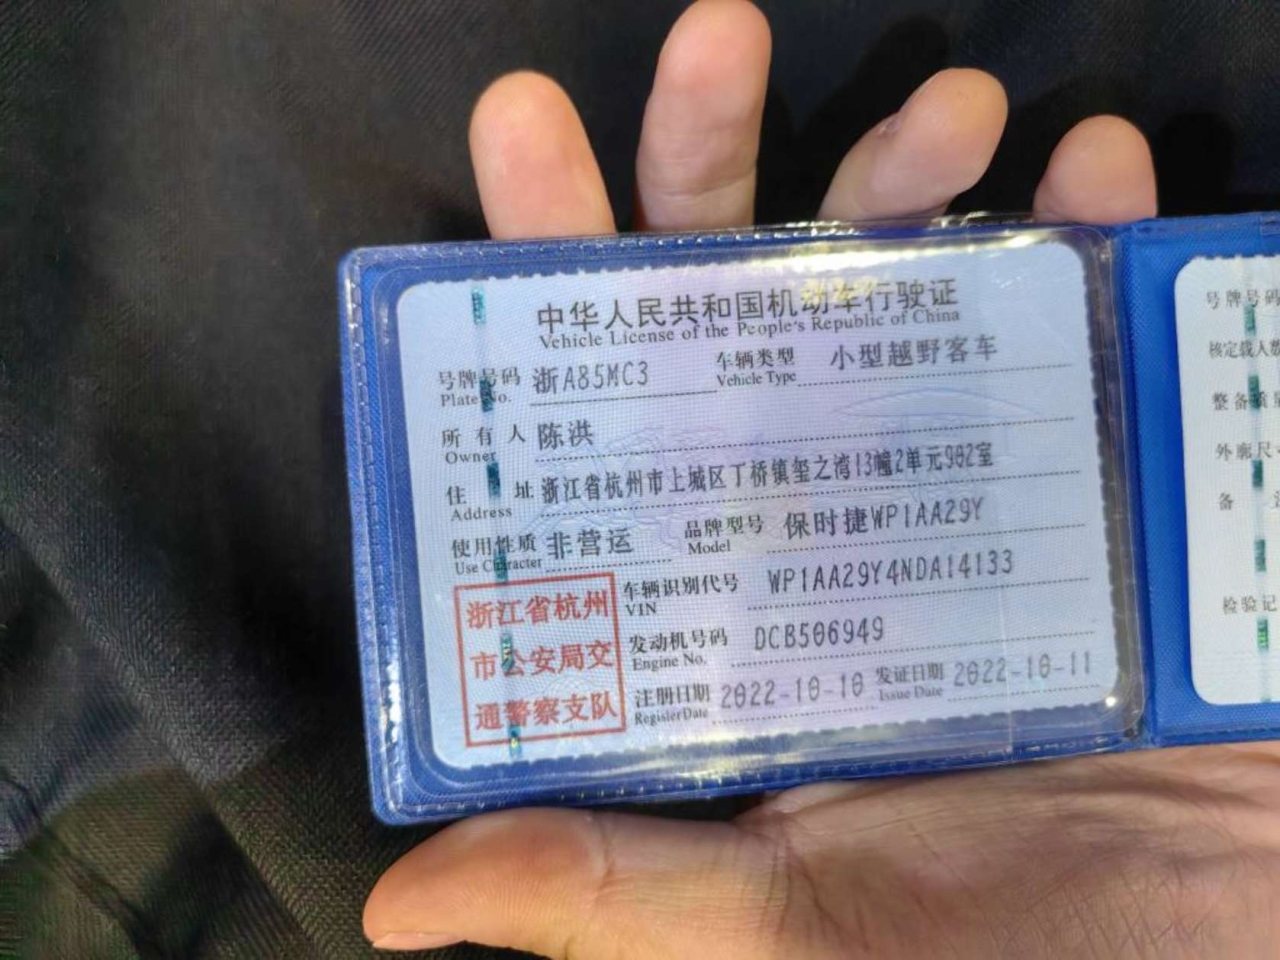 中华人民共和国机动车行驶证
Vehicle License of the People's Republic of China
号牌号码 浙A85MC3 车辆类型 小型越野客车
Plate No. Vehicle Type
所有人 陈洪
Owner
住址 浙江省杭州市上城区丁桥镇玺之湾13幢2单元902室
Address
使用性质 非营运 品牌型号 保时捷WP1AA29Y
Use Character Model
浙江省杭州市公安局交通警察支队
车辆识别代号 WP1AA29Y4NDA14133
VIN
发动机号码 DCB506949
Engine No.
注册日期 2022-10-10 发证日期 2022-10-11
Register Date Issue Date
号牌号码
核定载人数
整备质量
外廓尺寸
备
检验记